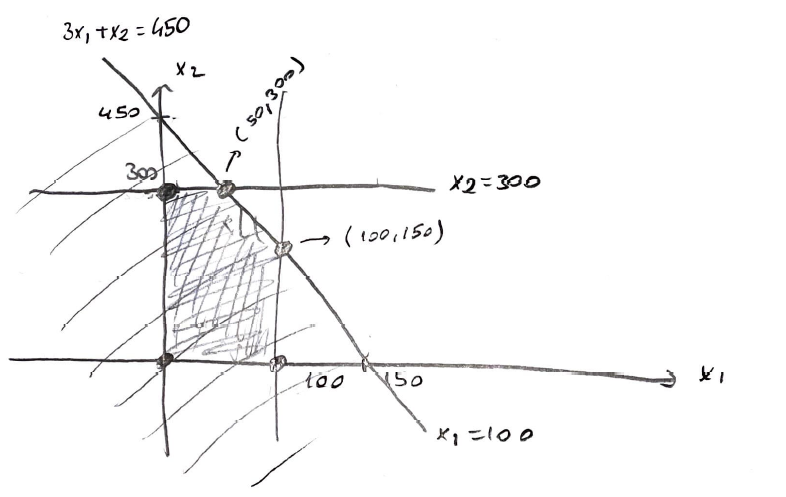 3x₁+x₂=450
x₂
450
(50,300)
300
x₂=300
(100,150)
100
150
x₁
x₁=100